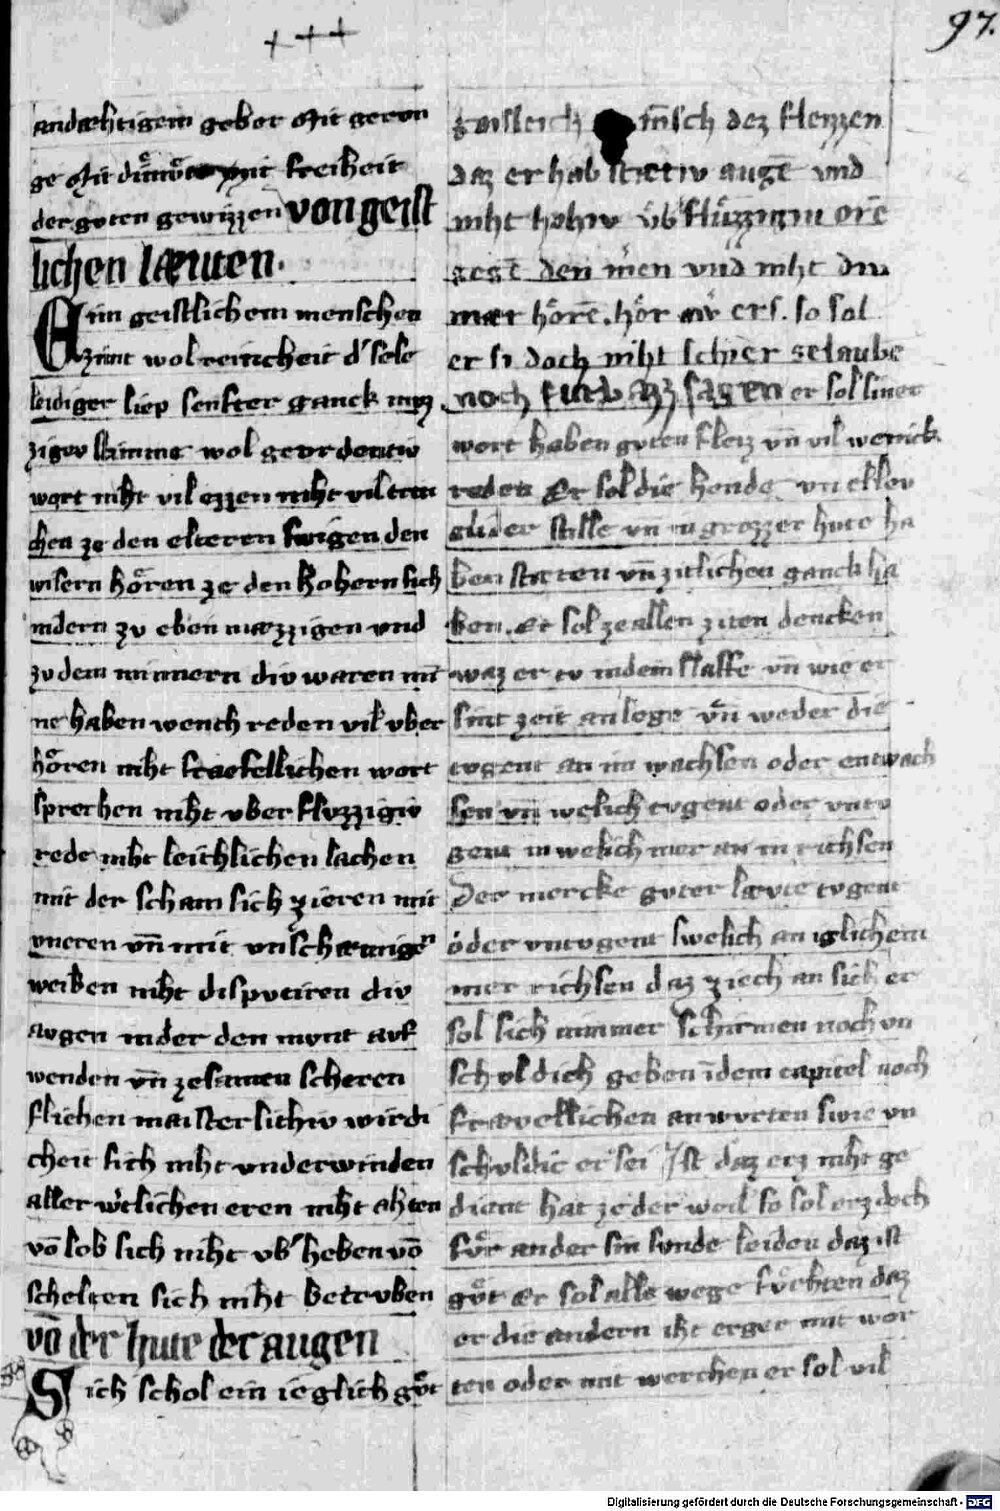 97.
andæhtigem gebot Mit geren
ge Mit diͤmuͤt mit freiheit
der guten gewizzen von geist
lichen læuten.
Eim geistlichem menschen
zimt wol reincheit d' sele
leidiger liep senfter ganck mæz
zigev stimme wol geordentiv
wort niht vil ezzen niht vil trin
chen ze den elteren swigen den
wisern hoͤren ze den hohern sich
nidern zv eben mæzzigen vnd
zv dem minnern div waren min
ne haben wench reden vil vber
hoͤren niht fræfellichen wort
sprechen niht vber fluzzigiv
rede niht leichlichen lachen
mit der scham sich zieren mit
vneren vn̄ mit vnschæmigen
weiben niht dispvtiren div
augen nider den mvnt avf
wenden vn̄ zesamen scheren
fliehen maisterlichiv wirdi
cheit sich niht vnderwinden
aller w'tlichen eren niht ahten
vō lob sich niht vb' heben vō
schelten sich niht betrvben
vō der hute der augen
Sich schol ein ieglich goͤt
gaisleich mn̄sch dez flezzen
daz er hab stætiv augē vnd
niht hohiv uͤb'fluͤzzigiv orē
gegē den men vnd niht div
mær hoͤrē. hoͤr aͮ ers. so sol
er si doch niht schier gelaube
noch furbazz sagen er sol siner
wort haben guten fleiz vn̄ vil wenick
reden Er sol die hende vn ellev
glider stille vn in grozzer hute ha
ben stæten vn̄ zitlichen ganck ha
ben. Er sol ze allen ziten dencken
waz er tv in dem slaffe vn̄ wie er
sint zeit an lege vn̄ weder die
tvgent an im wachsen oder entwach
sen vn̄ welich tvgent oder vntv
gent in welich mer an in richsen
Der mercke guter læute tvgent
oder vntvgent swelich an iglichem
mer richsen daz ziech an sich er
sol sich nimmer schirmen noch vn
schvldich geben īdem capitel noch
frævellichen anwvrten swie vn
schvldic er sei Ist daz erz niht ge
dient hat ze der weil so sol erz doch
fuͤr ander sin svnde leiden daz ist
goͤt Er sol alle wege fuͤrhten daz
er die andern iht erger mit wor
ten oder mit werchen er sol vil
Digitalisierung gefördert durch die Deutsche Forschungsgemeinschaft - DFG